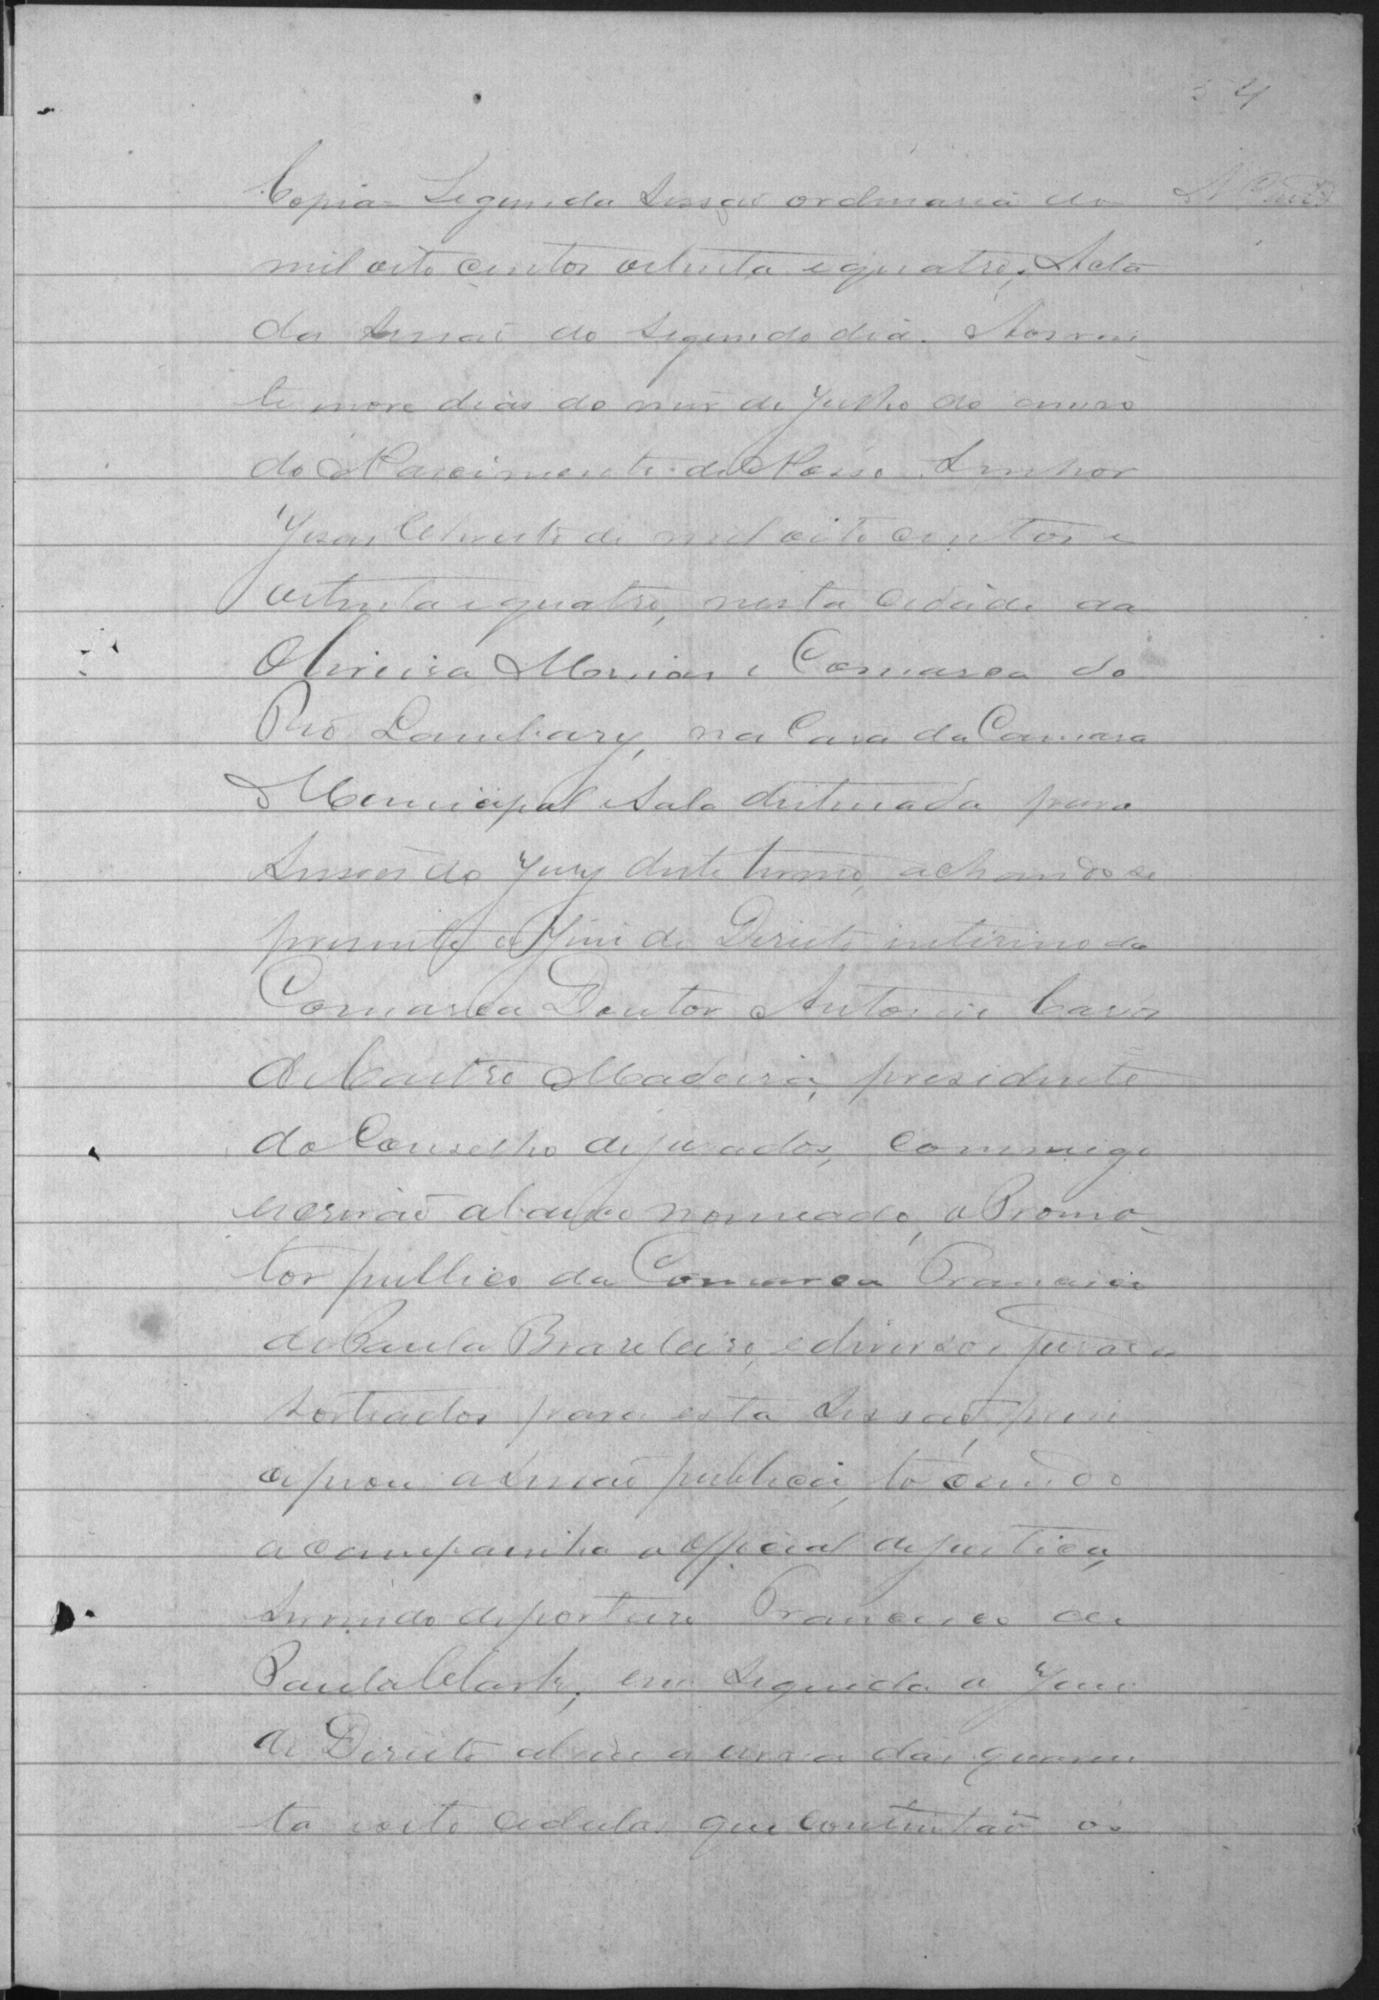 54
Copia Segunda Sessão ordinaria de
mil oito centos oitenta e quatro, Acta
da Sessão do segundo dia. Aos vin
te nove dias do mez de Julho do anno
do Nascimento de Nosso Senhor
Jesus Christo de mil oito centos e
oitenta e quatro, nesta Cidade da
Oliveira Minas e Comarca do
Rio Lambary, na Casa da Camara
Municipal Sala destinada para
Sessões do Jury deste termo, achando se
presente o Juiz de Direito interino da
Comarca Doutor Antonio
de Castro Madeira, presidente
do Conselho de jurados, commigo
escrivão abaixo nomeado, o Promo-
tor publico da Comarca Francisco
de Paula Brazileiro, e diversos jurados
sorteados para esta Sessão, prin
cipiou a Sessão publica, tocando
a campainha o official de justiça,
servindo de porteiro Francisco de
Paula, em seguida o Juiz
de Direito abrio a urna das quaren
ta e oito cedulas que continhão os